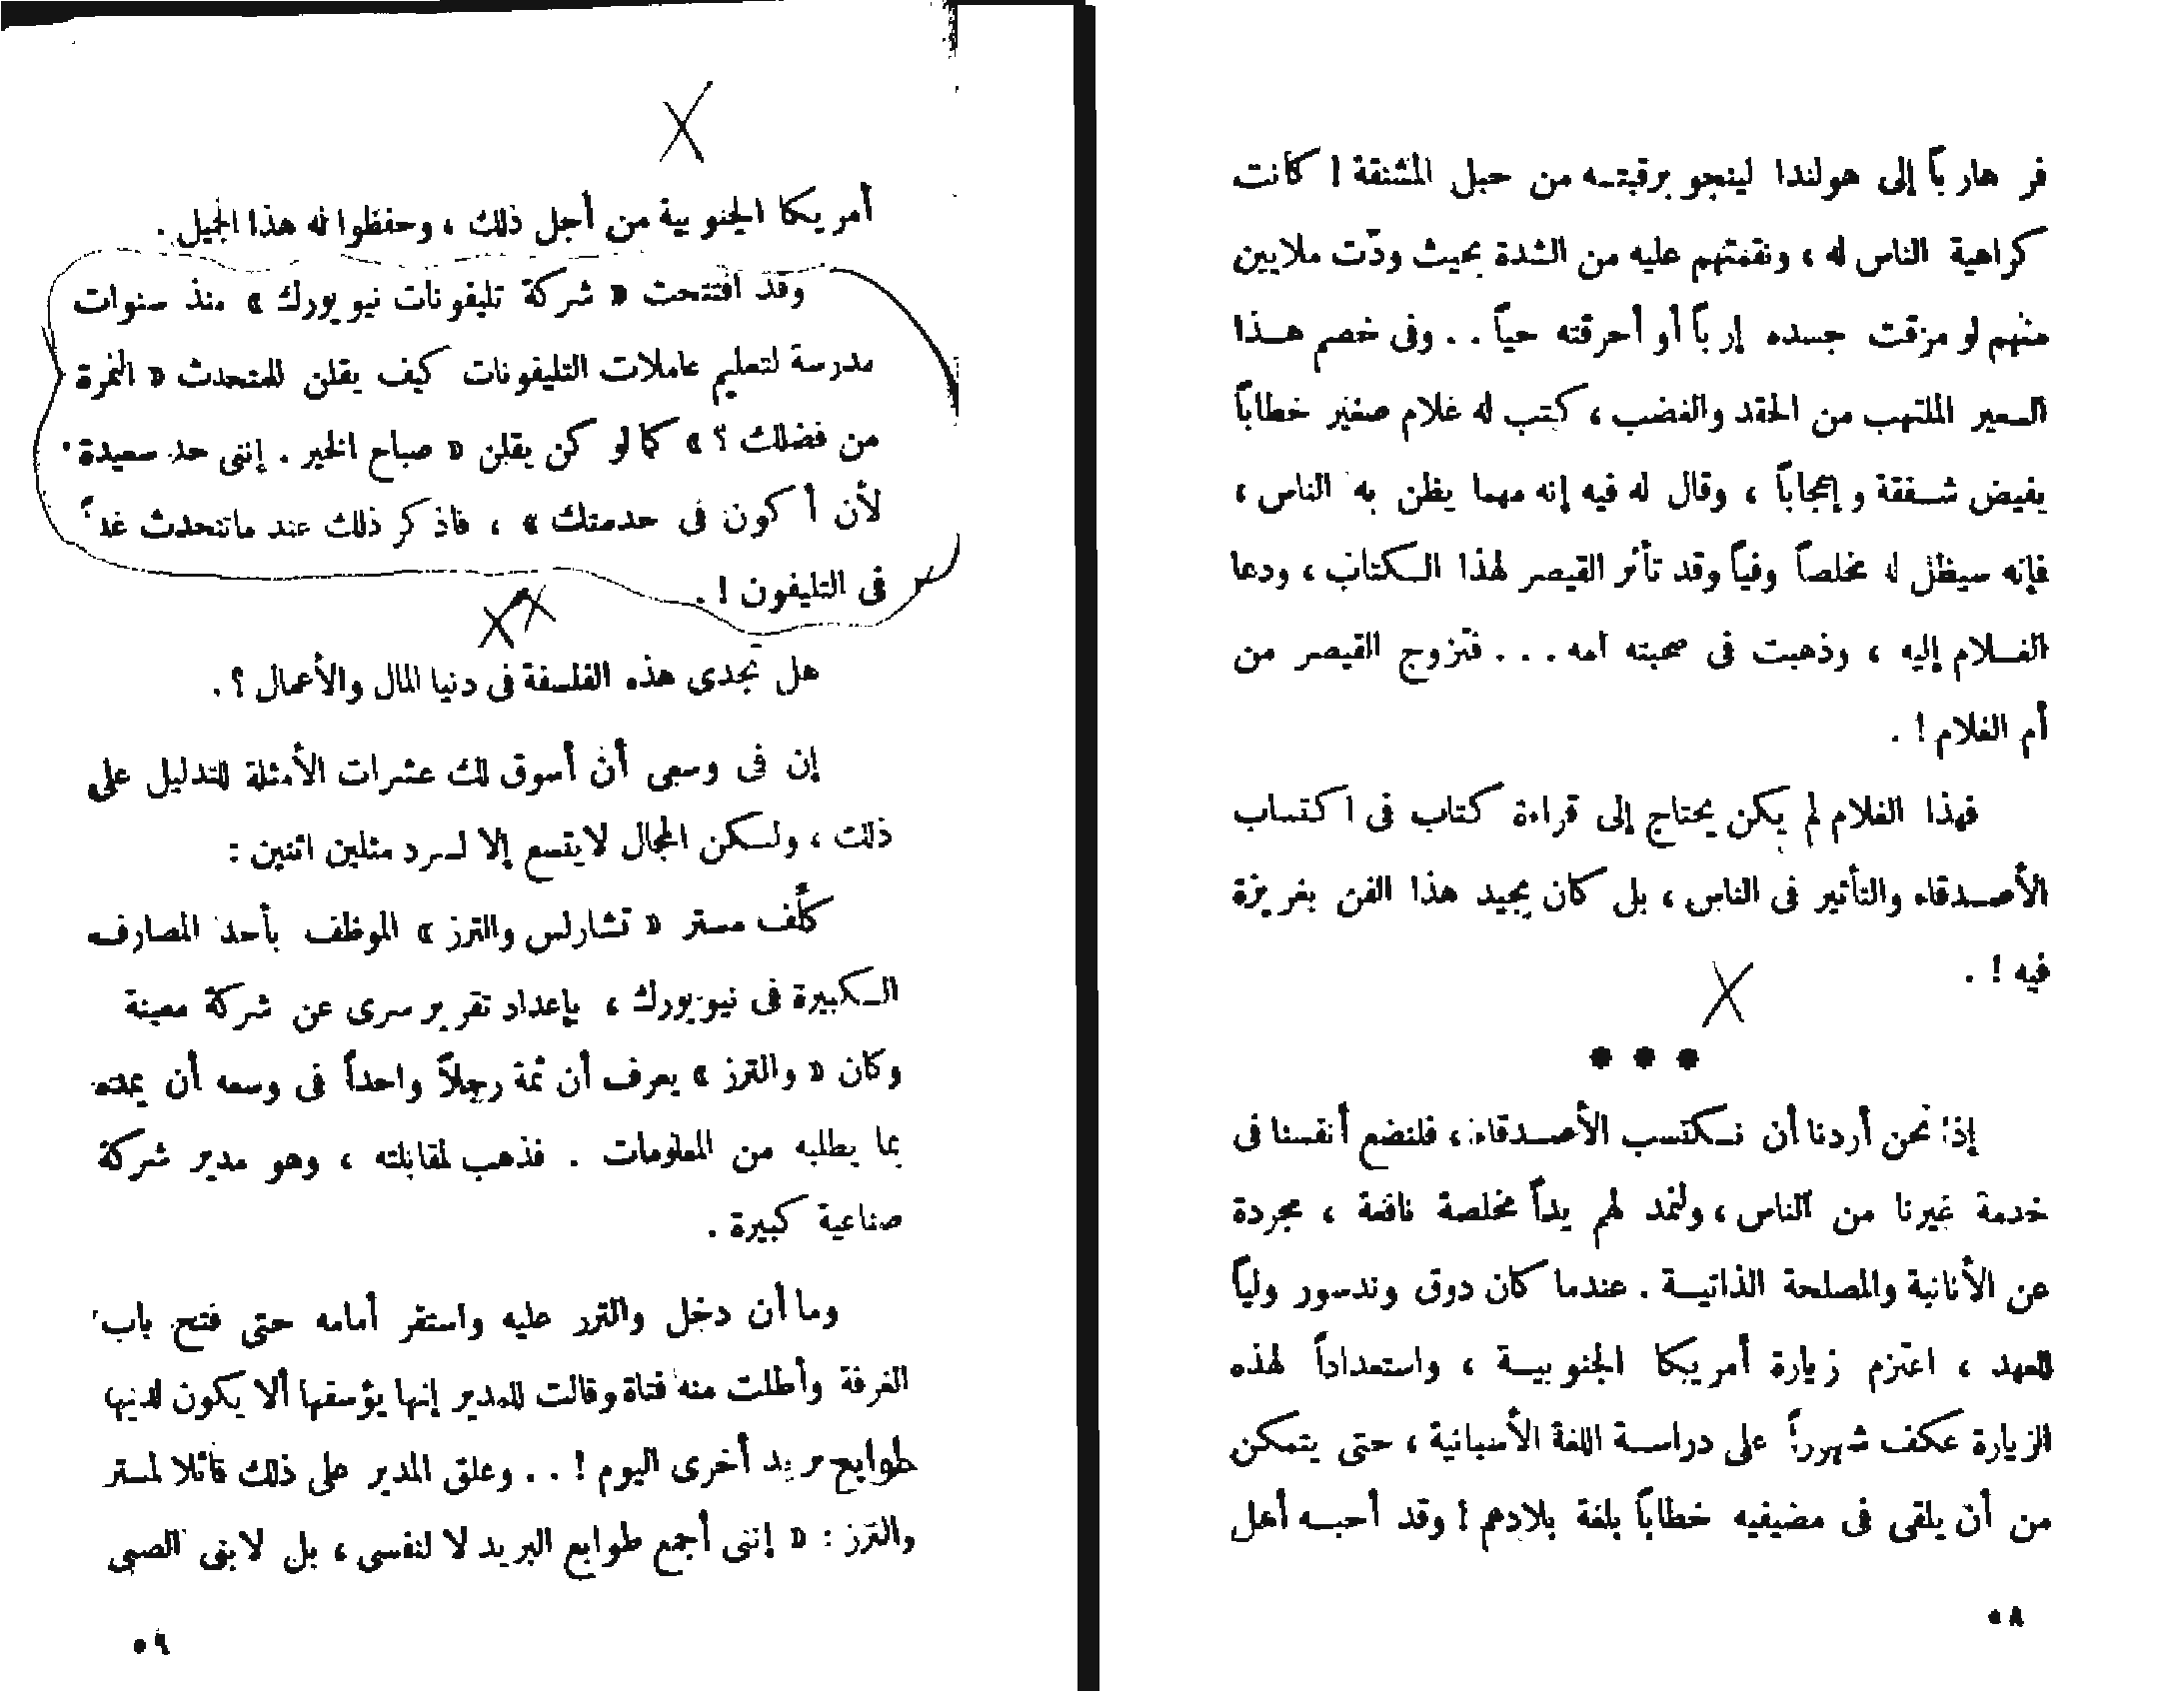 فر هارباً إلى هولندا لينجو برقبته من حبل المشنقة ! كانت
كراهية الناس له ، ونقمتهم عليه من الشدة بحيث ودّت ملايين
منهم لو مزقت جسده إرباً أو أحرقته حياً . . وفى خضم هذا
السعير الملتهب من الحقد والغضب ، كتب له غلام صغير خطاباً
يفيض شفقة وإعجاباً ، وقال له فيه إنه مهما يظن به الناس ،
فإنه سيظل له مخلصاً وفياً وقد تأثر القيصر لهذا الكتاب ، ودعا
الغلام إليه ، وذهبت فى صحبته أمه . . . فتزوج القيصر من
أم الغلام ! .
فهذا الغلام لم يكن يحتاج إلى قراءة كتاب فى اكتساب
الأصدقاء والتأثير فى الناس ، بل كان يجيد هذا الفن بغريزة
فيه ! .
● ● ●
إذا نحن أردنا أن نكتسب الأصدقاء ، فلنضع أنفسنا فى
خدمة غيرنا من الناس ، ولنمد لهم يداً مخلصة نافعة ، مجردة
عن الأنانية والمصلحة الذاتية . عندما كان دوق وندسور ولياً
للعهد ، اعتزم زيارة أمريكا الجنوبية ، واستعداداً لهذه
الزيارة عكف شهوراً على دراسة اللغة الأسبانية ، حتى يتمكن
من أن يلقى فى مضيفيه خطاباً بلغة بلادهم ! وقد أحبه أهل
٥٨
أمريكا الجنوبية من أجل ذلك ، وحفظوا له هذا الجميل .
وقد افتتحت « شركة تليفونات نيويورك » منذ سنوات
مدرسة لتعليم عاملات التليفونات كيف يقلن للمتحدث « النمرة
من فضلك ؟ » كما لو كن يقلن « صباح الخير . إننى جد سعيدة
لأن أكون فى خدمتك » ، فاذكر ذلك عند ماتتحدث غداً
فى التليفون ! .
هل تجدى هذه الفلسفة فى دنيا المال والأعمال ؟ .
إن فى وسعى أن أسوق لك عشرات الأمثلة للتدليل على
ذلك ، ولكن المجال لايتسع إلا لسرد مثلين اثنين :
كلّف مستر « تشارلس والترز » الموظف بأحد المصارف
الكبيرة فى نيويورك ، بإعداد تقرير سرى عن شركة معينة
وكان « والترز » يعرف أن ثمة رجلاً واحداً فى وسعه أن يمده
بما يطلبه من المعلومات . فذهب لمقابلته ، وهو مدير شركة
صناعية كبيرة .
وما أن دخل والترز عليه واستقر أمامه حتى فتح باب
الغرفة وأطلت منه فتاة وقالت للمدير إنها يؤسفها ألا يكون لديها
طوابع بريد أخرى اليوم ! . . وعلق المدير على ذلك قائلا لمستر
والترز : « إننى أجمع طوابع البريد لا لنفسى ، بل لابنى الصبى
٥٩